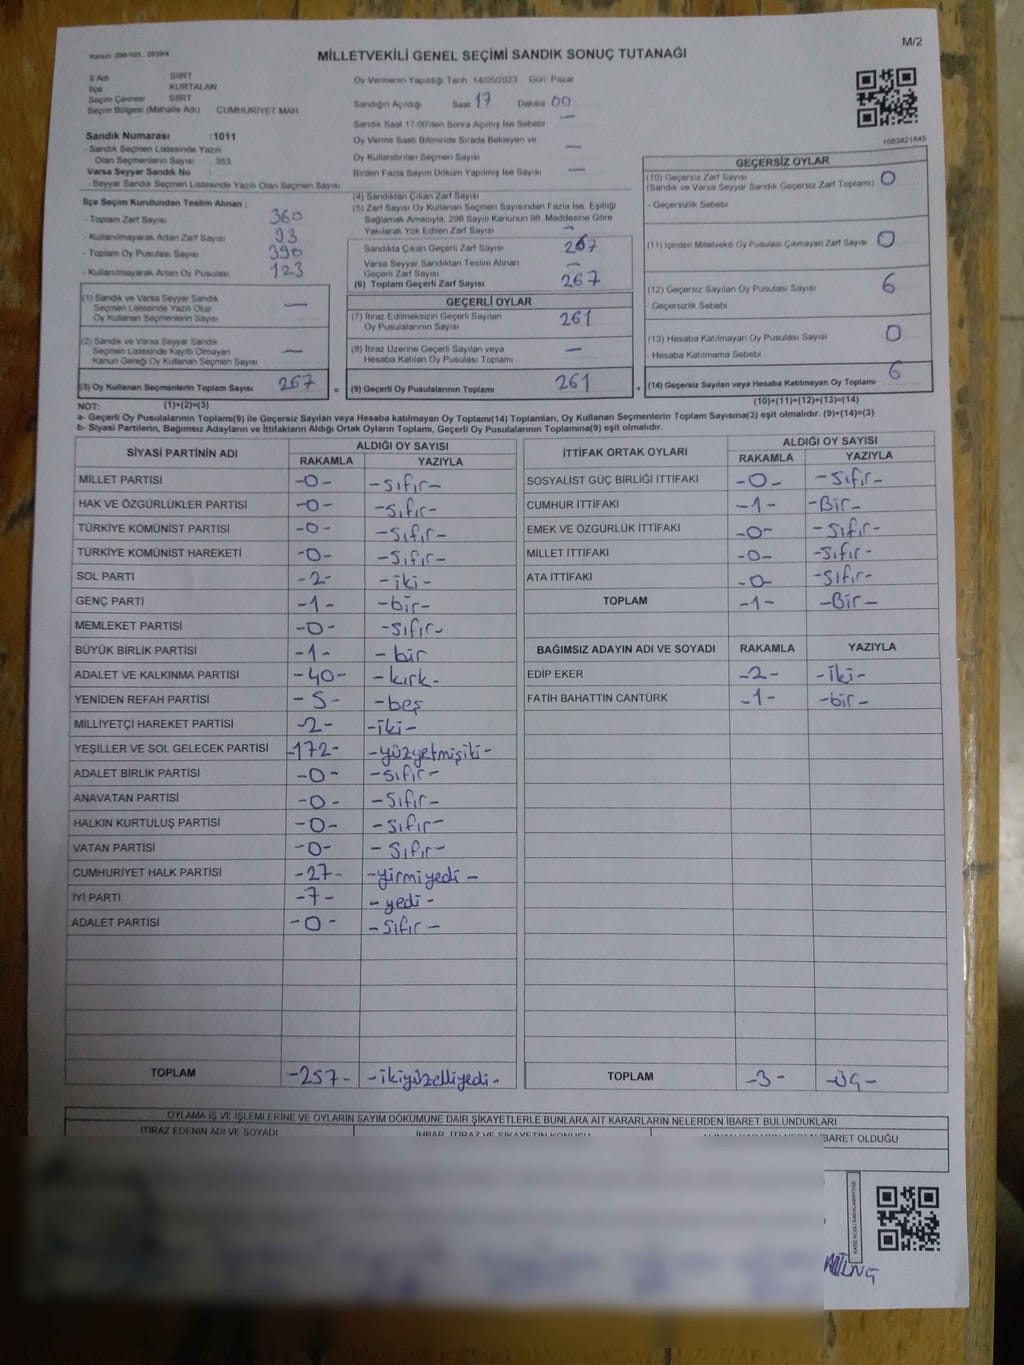 Kanun: 298/105 : 2839/4
MİLLETVEKİLİ GENEL SEÇİMİ SANDIK SONUÇ TUTANAĞI
M/2
İl Adı SİİRT
İlçe KURTALAN
Seçim Çevresi SİİRT
Seçim Bölgesi (Mahalle Adı) CUMHURİYET MAH.
Sandık Numarası :1011
- Sandık Seçmen Listesinde Yazılı
Olan Seçmenlerin Sayısı : 353
Varsa Seyyar Sandık No :
- Seyyar Sandık Seçmen Listesinde Yazılı Olan Seçmen Sayısı
Oy Vermenin Yapıldığı Tarih 14/05/2023 Gün Pazar
Sandığın Açıldığı Saat 17 Dakika 00
Sandık Saat 17.00'den Sonra Açılmış İse Sebebi —
Oy Verme Saati Bitiminde Sırada Bekleyen ve
Oy Kullandırılan Seçmen Sayısı —
Birden Fazla Sayım Döküm Yapılmış İse Sayısı —
1083821845
İlçe Seçim Kurulundan Teslim Alınan ;
- Toplam Zarf Sayısı 360
- Kullanılmayarak Artan Zarf Sayısı 93
- Toplam Oy Pusulası Sayısı 390
- Kullanılmayarak Artan Oy Pusulası 123
(1) Sandık ve Varsa Seyyar Sandık
Seçmen Listesinde Yazılı Olup
Oy Kullanan Seçmenlerin Sayısı —
(2) Sandık ve Varsa Seyyar Sandık
Seçmen Listesinde Kayıtlı Olmayan
Kanun Gereği Oy Kullanan Seçmen Sayısı —
(3) Oy Kullanan Seçmenlerin Toplam Sayısı 267 =
(1)+(2)=(3)
(4) Sandıktan Çıkan Zarf Sayısı
(5) Zarf Sayısı Oy Kullanan Seçmen Sayısından Fazla İse, Eşitliği
Sağlamak Amacıyla, 298 Sayılı Kanunun 98. Maddesine Göre
Yakılarak Yok Edilen Zarf Sayısı —
Sandıkta Çıkan Geçerli Zarf Sayısı 267
Varsa Seyyar Sandıktan Teslim Alınan
Geçerli Zarf Sayısı —
(6) Toplam Geçerli Zarf Sayısı 267
GEÇERLİ OYLAR
(7) İtiraz Edilmeksizin Geçerli Sayılan
Oy Pusulalarının Sayısı 261
(8) İtiraz Üzerine Geçerli Sayılan veya
Hesaba Katılan Oy Pusulası Toplamı —
(9) Geçerli Oy Pusulalarının Toplamı 261 +
GEÇERSİZ OYLAR
(10) Geçersiz Zarf Sayısı
(Sandık ve Varsa Seyyar Sandık Geçersiz Zarf Toplamı) 0
- Geçersizlik Sebebi
(11) İçinden Milletvekili Oy Pusulası Çıkmayan Zarf Sayısı 0
(12) Geçersiz Sayılan Oy Pusulası Sayısı 6
Geçersizlik Sebebi
(13) Hesaba Katılmayan Oy Pusulası Sayısı 0
- Hesaba Katılmama Sebebi
(14) Geçersiz Sayılan veya Hesaba Katılmayan Oy Toplamı 6
(10)+(11)+(12)+(13)=(14)
NOT:
a- Geçerli Oy Pusulalarının Toplamı(9) ile Geçersiz Sayılan veya Hesaba katılmayan Oy Toplamı(14) Toplamları, Oy Kullanan Seçmenlerin Toplam Sayısına(3) eşit olmalıdır. (9)+(14)=(3)
b- Siyasi Partilerin, Bağımsız Adayların ve İttifakların Aldığı Ortak Oyların Toplamı, Geçerli Oy Pusulalarının Toplamına(9) eşit olmalıdır.
SİYASİ PARTİNİN ADI ALDIĞI OY SAYISI
RAKAMLA YAZIYLA
MİLLET PARTİSİ -0- -sıfır-
HAK VE ÖZGÜRLÜKLER PARTİSİ -0- -sıfır-
TÜRKİYE KOMÜNİST PARTİSİ -0- -sıfır-
TÜRKİYE KOMÜNİST HAREKETİ -0- -sıfır-
SOL PARTİ -2- -iki-
GENÇ PARTİ -1- -bir-
MEMLEKET PARTİSİ -0- -sıfır-
BÜYÜK BİRLİK PARTİSİ -1- -bir
ADALET VE KALKINMA PARTİSİ -40- -kırk-
YENİDEN REFAH PARTİSİ -5- -beş
MİLLİYETÇİ HAREKET PARTİSİ -2- -iki-
YEŞİLLER VE SOL GELECEK PARTİSİ -172- -yüzyetmişiki-
ADALET BİRLİK PARTİSİ -0- -sıfır-
ANAVATAN PARTİSİ -0- -sıfır-
HALKIN KURTULUŞ PARTİSİ -0- -sıfır-
VATAN PARTİSİ -0- -sıfır-
CUMHURİYET HALK PARTİSİ -27- -yirmiyedi-
İYİ PARTİ -7- -yedi-
ADALET PARTİSİ -0- -sıfır-
TOPLAM -257- -ikiyüzelliyedi-
İTTİFAK ORTAK OYLARI ALDIĞI OY SAYISI
RAKAMLA YAZIYLA
SOSYALİST GÜÇ BİRLİĞİ İTTİFAKI -0- -sıfır-
CUMHUR İTTİFAKI -1- -Bir-
EMEK VE ÖZGÜRLÜK İTTİFAKI -0- -sıfır-
MİLLET İTTİFAKI -0- -sıfır-
ATA İTTİFAKI -0- -sıfır-
TOPLAM -1- -Bir-
BAĞIMSIZ ADAYIN ADI VE SOYADI RAKAMLA YAZIYLA
EDİP EKER -2- -iki-
FATİH BAHATTİN CANTÜRK -1- -bir-
TOPLAM -3- -üç-
OYLAMA İŞ VE İŞLEMLERİNE VE OYLARIN SAYIM DÖKÜMÜNE DAİR ŞİKAYETLERLE BUNLARA AİT KARARLARIN NELERDEN İBARET BULUNDUKLARI
İTİRAZ EDENİN ADI VE SOYADI İHBAR, İTİRAZ VE ŞİKAYETİN KONUSU İBARET OLDUĞU